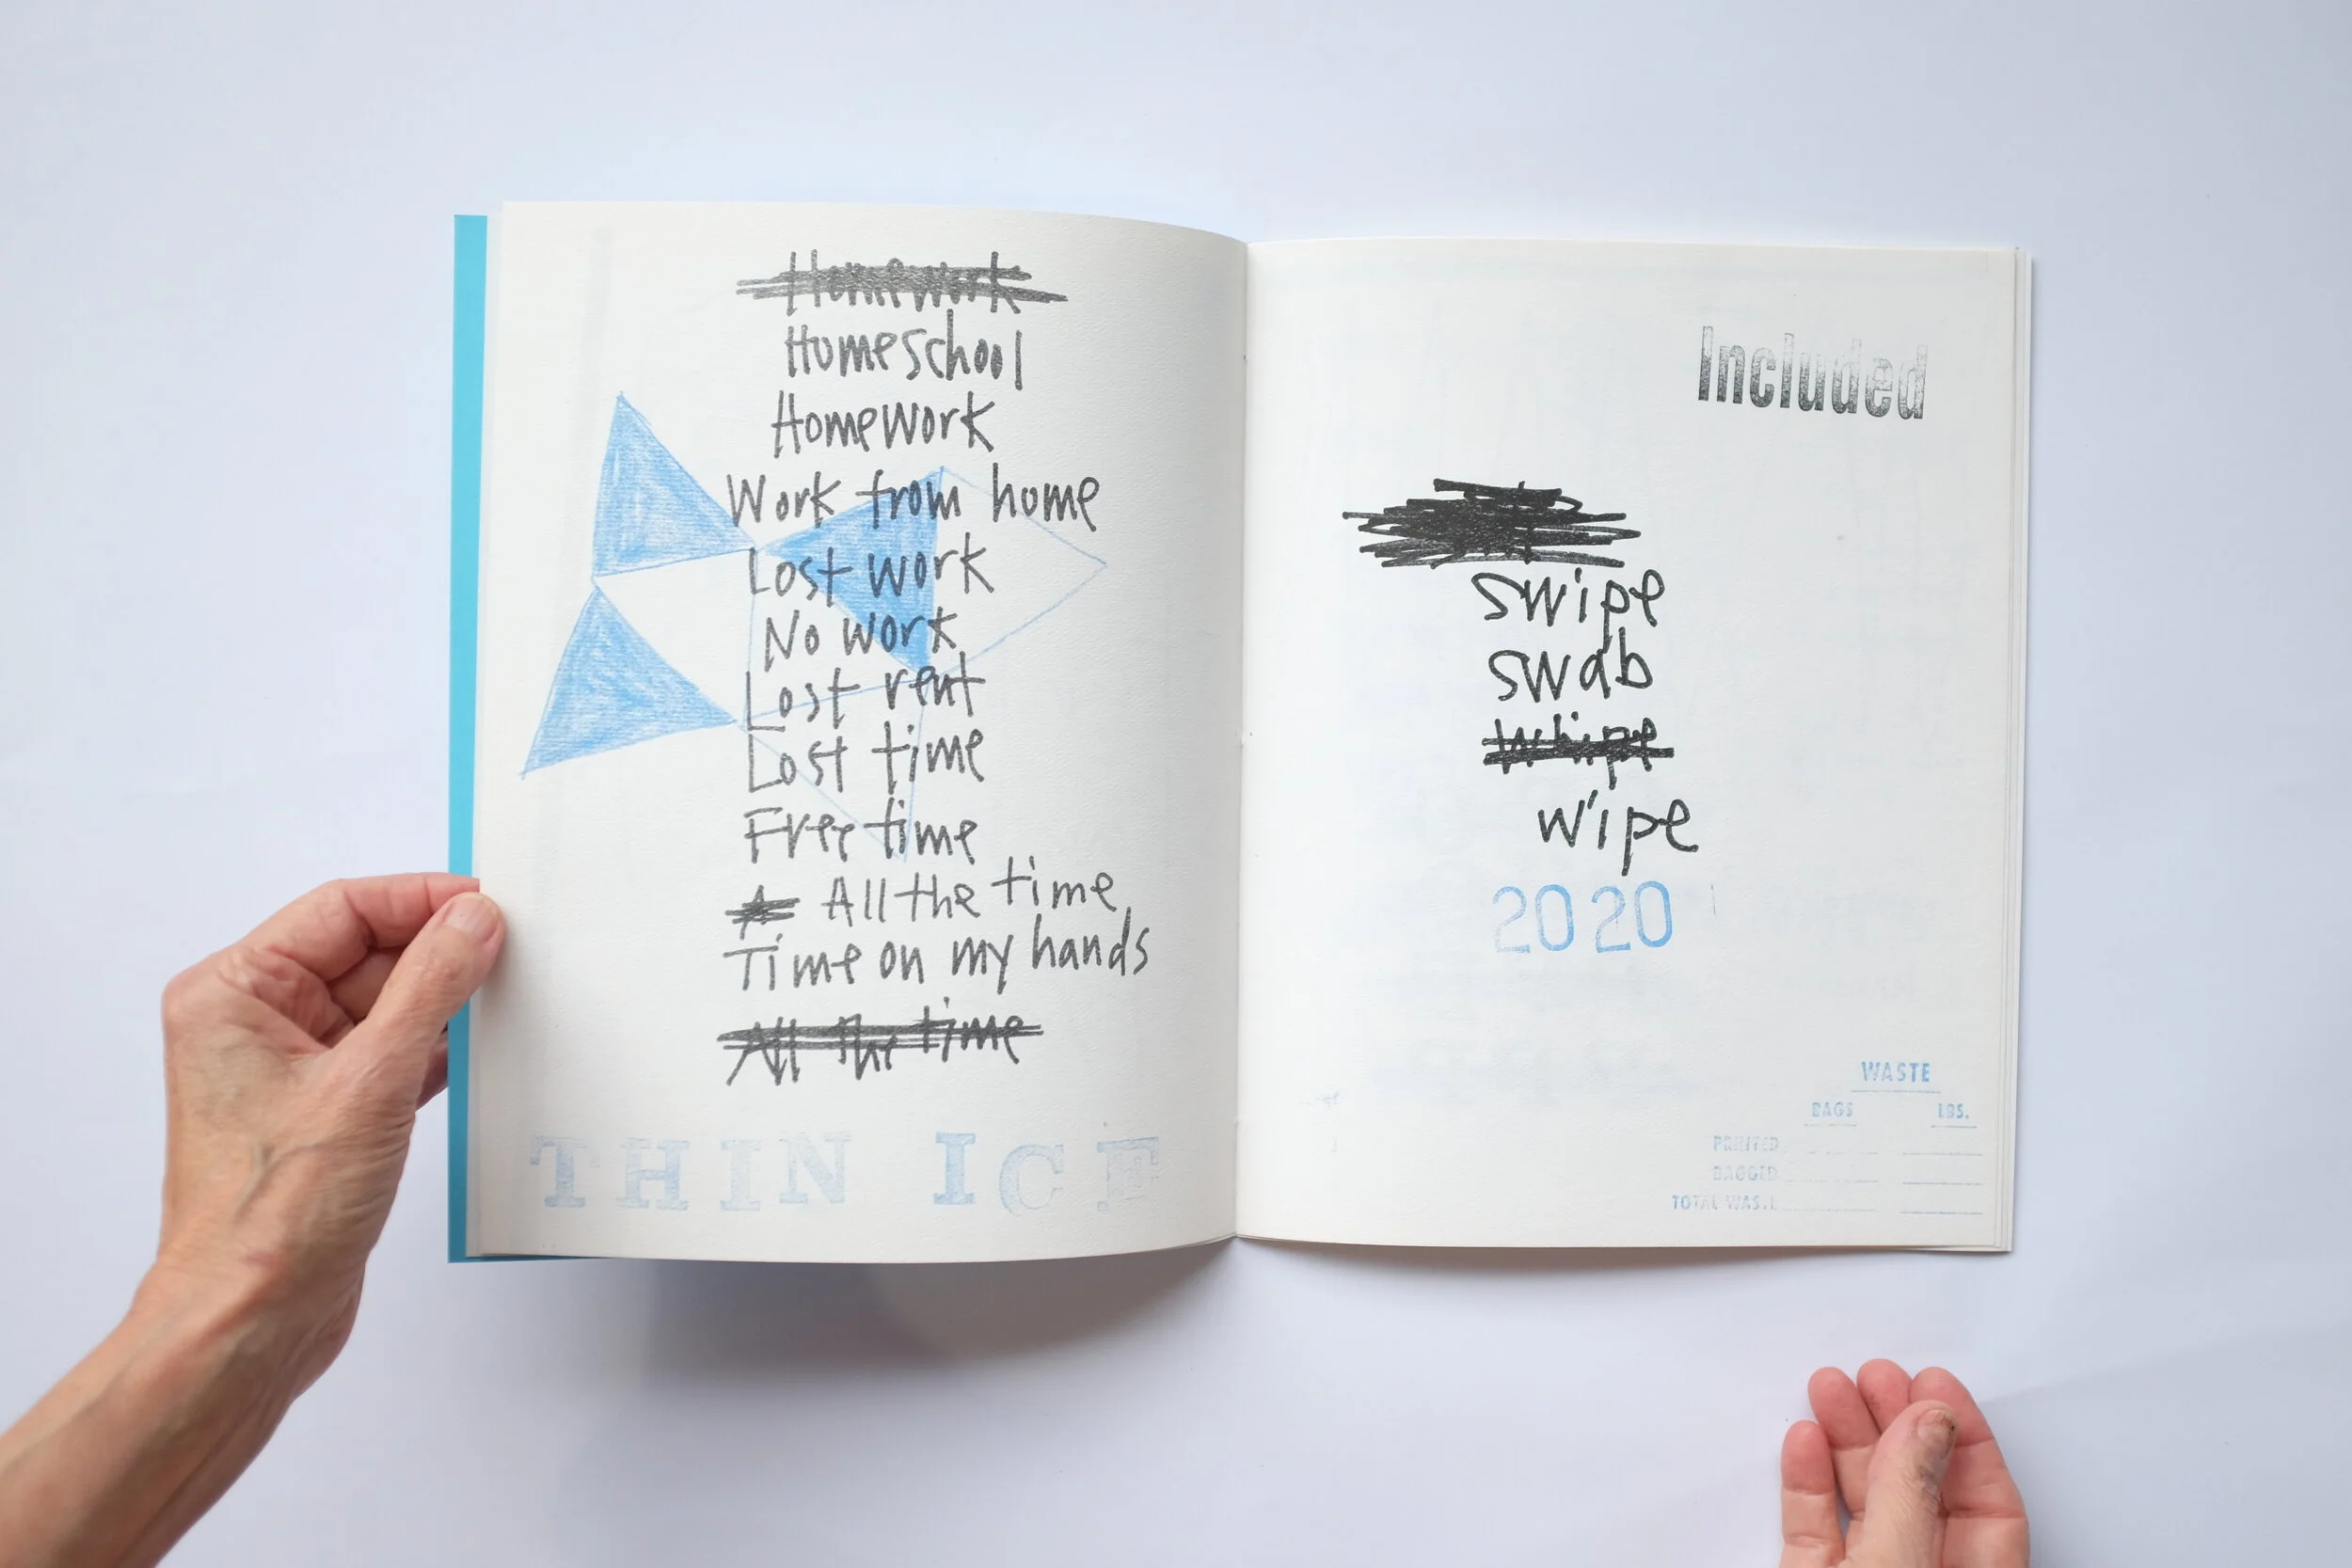 Homework
Homeschool
Homework
Work from home
Lost work
No work
Lost rent
Lost time
Free time
A All the time
Time on my hands
All the time
THIN ICE
Included
swipe
swab
whipe
wipe
2020
WASTE
BAGS LBS.
PRINTED
BAGGED
TOTAL WASTE